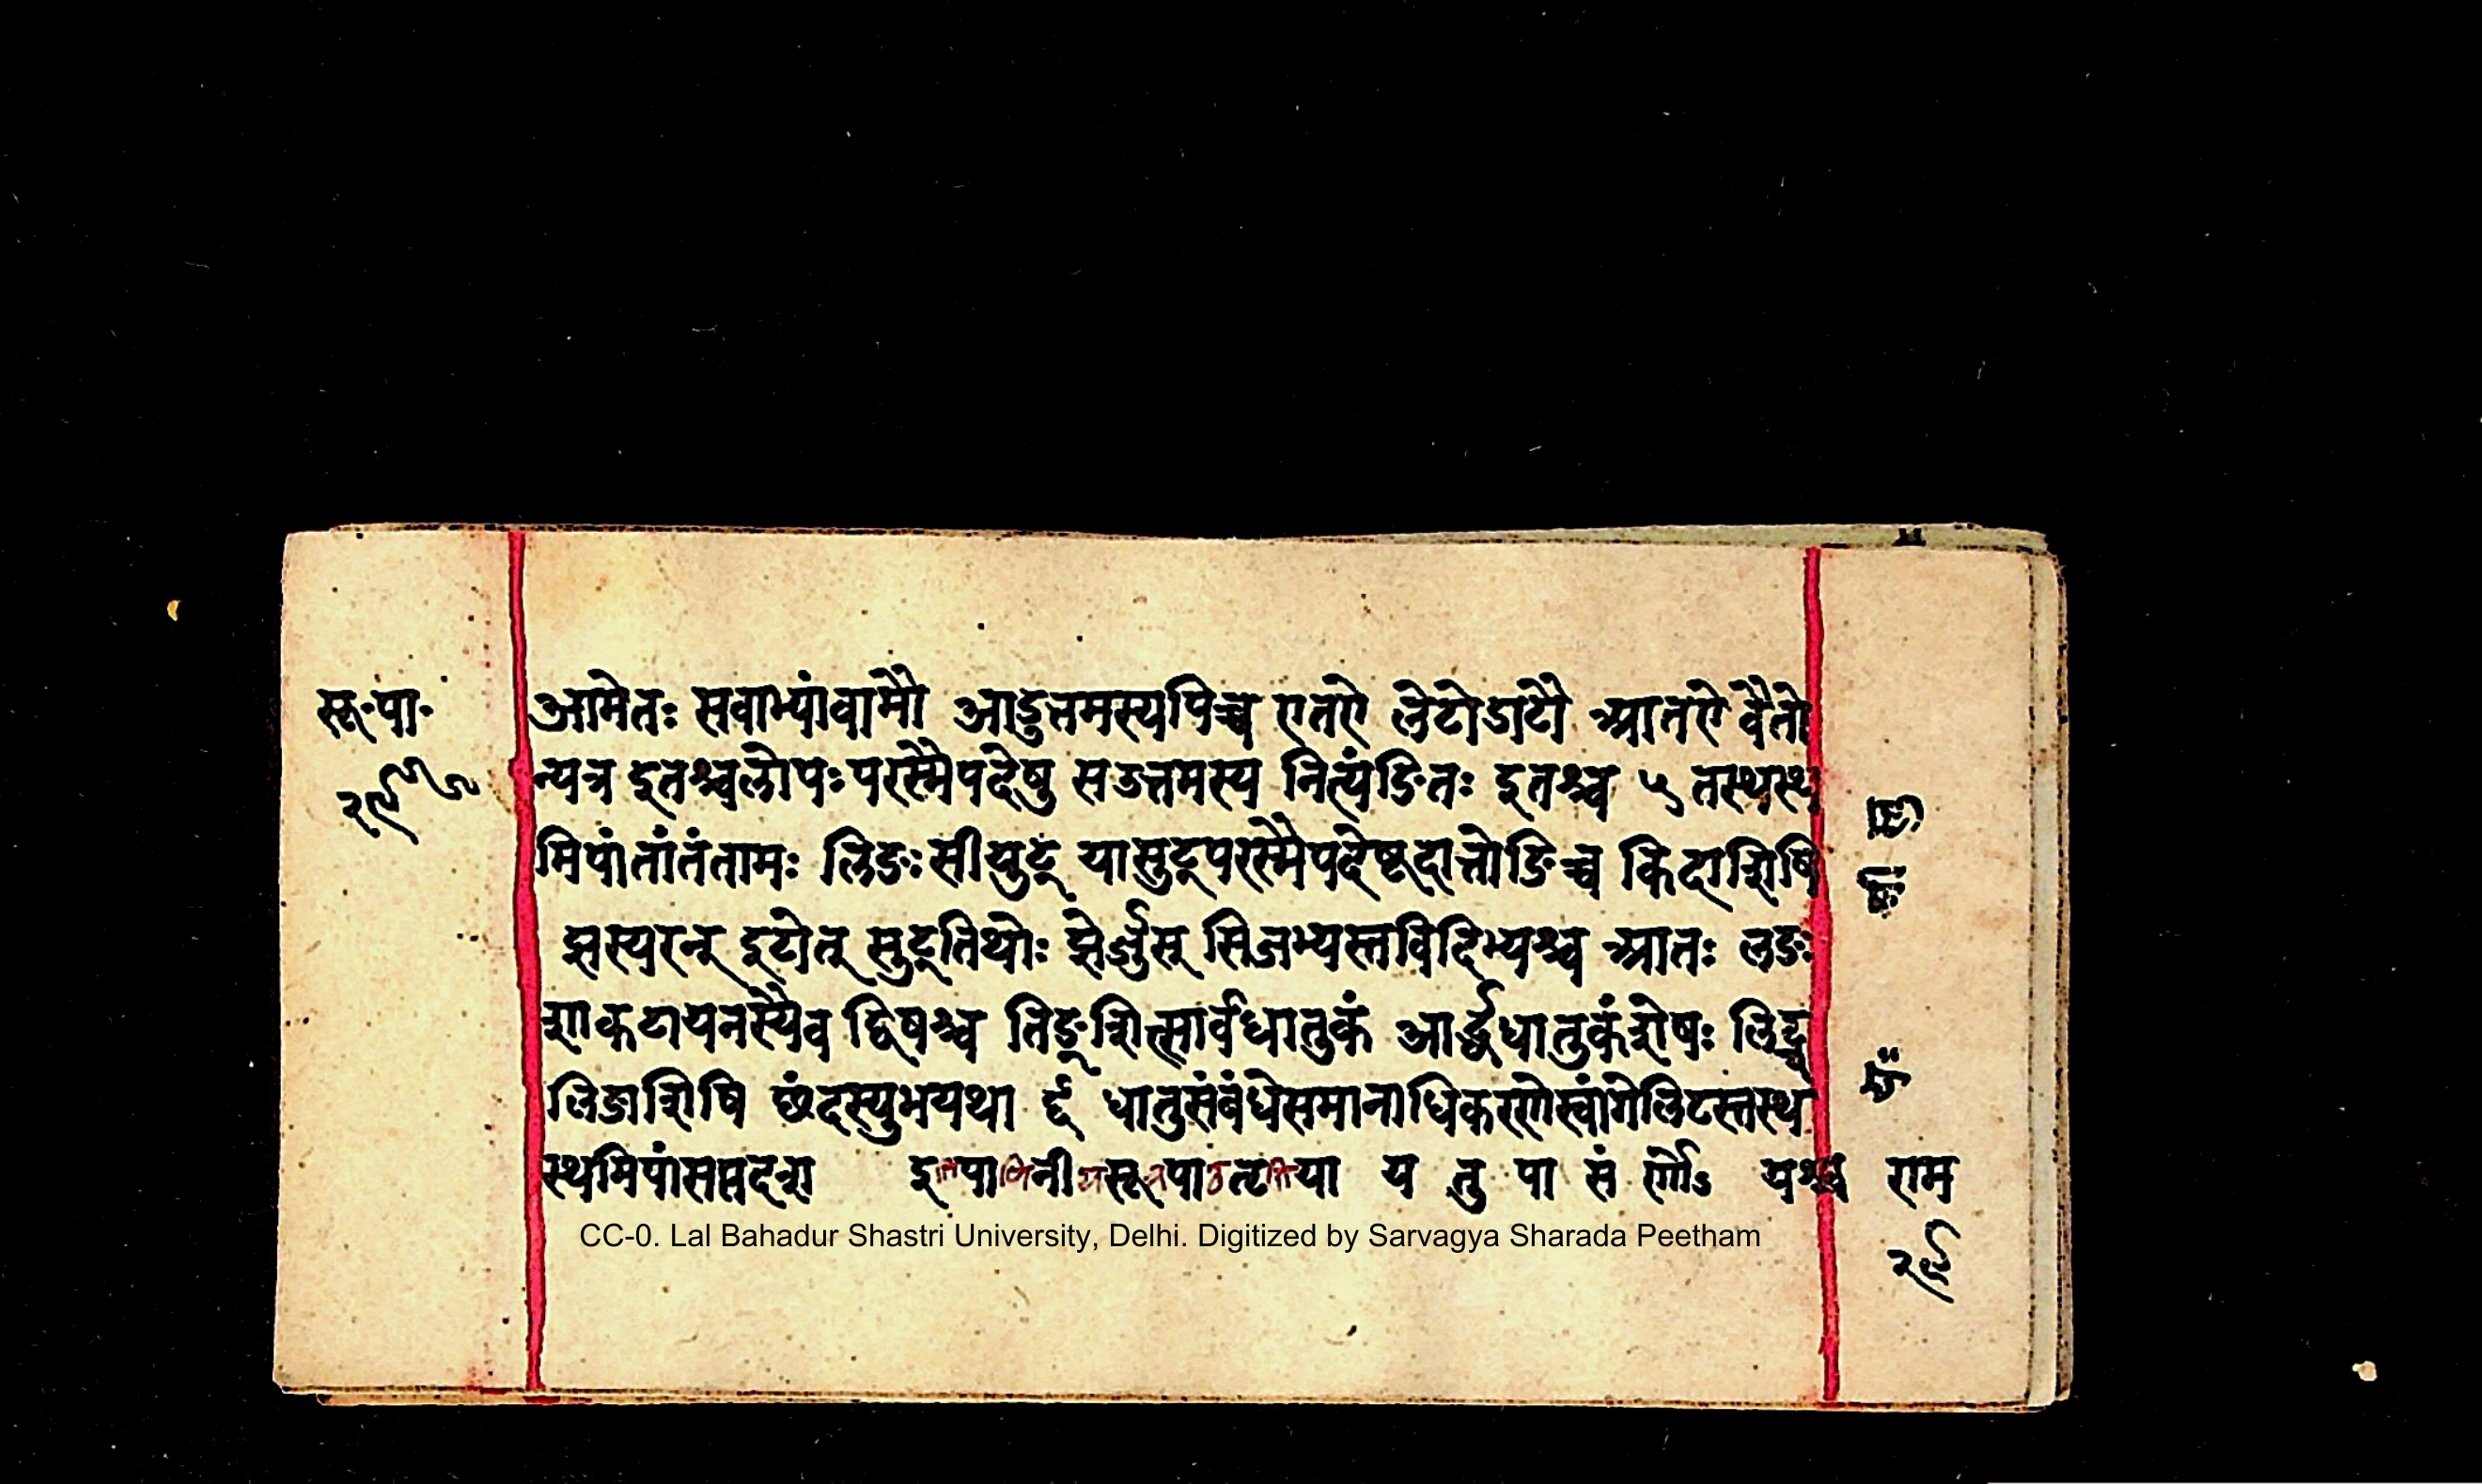 सू॰पा॰
२९
आमेतः सवाभ्यांवामौ आडुत्तमस्यपिच्च एतऐ लेटोडाटौ आतऐ वैतो
न्यत्र इतश्चलोपः परस्मैपदेषु सउत्तमस्य नित्यंङितः इतश्च ५ तस्थस्थ
मिपांतांतंतामः लिङः सीयुट् यासुट्परस्मैपदेषूदात्तोङिच्च किदाशिषि
झस्यरन् इटोत् सुट्तिथोः झेर्जुस् सिजभ्यस्तविदिभ्यश्च आतः लङः
शाकटायनस्यैव द्विषश्च तिङ्शित्सार्वधातुकं आर्द्धधातुकंशेषः लिट्च
लिङाशिषि छंदस्युभयथा धातुसंबंधेसमानाधिकरणेस्वांगेलिटस्तस्थ
स्थमिपांसप्तदश इतिपाणिनीयसूत्रपाठतृतिया य तु पा सं र्णोऽ यश्च
राम
२९
CC-0. Lal Bahadur Shastri University, Delhi. Digitized by Sarvagya Sharada Peetham